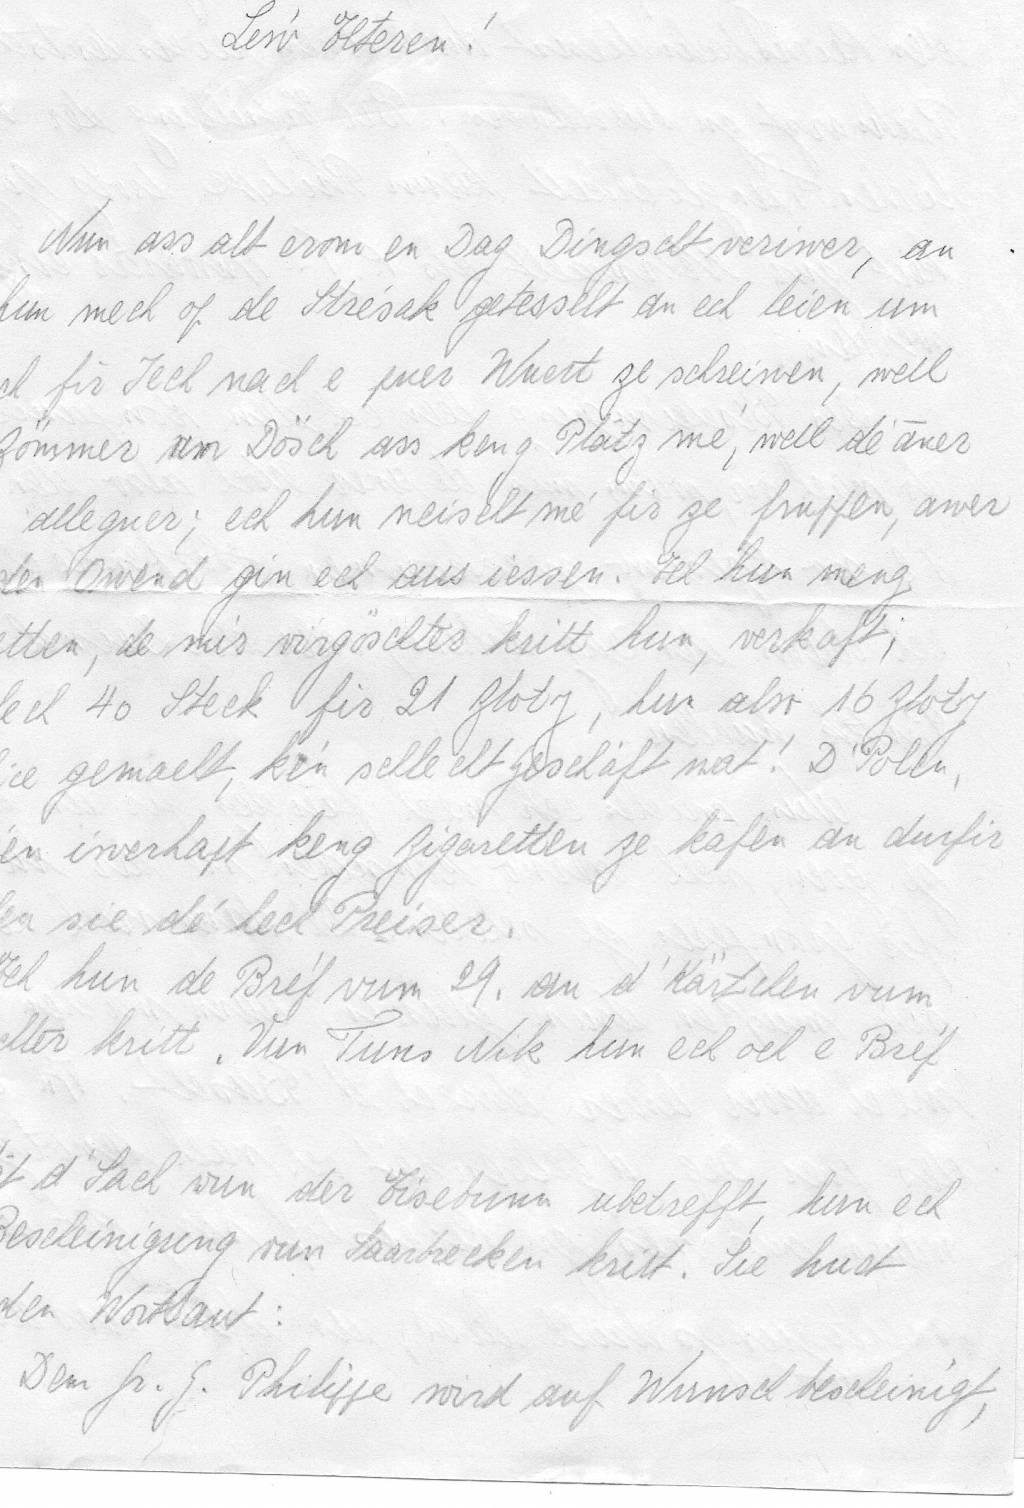 Léiw Elteren!
Nun ass alt erom en Dag Dingscht veriwer, an
hun mech op de Strésak getesselt an ech leien um
fir Iech nach e puer Wuert ze schreiwen, well
Zömmer um Dösch ass keng Plätz mé, well dé āner
alleguer; ech hun neischt mé fir ze fruppen, awer
den Owend gin ech aus iessen. Ech hun meng
etten, de mir virgöschter kritt hun, verkaft;
40 Steck fir 21 Zloty, hun also 16 Zloty
gemacht, kén schlecht Geschäft wat! D'Polen,
iwerhapt keng Zigaretten ze kāfen an durfir
sie dé héch Preiser.
Ech hun de Bréf vum 29. an d'Kärtchen vum
kritt. Vun Tuns Nik hun ech och e Bréf
d'Sach vun der Eisebunn ubetrefft, hun ech
Bescheinigung vun Saarbrecken kritt. Sie huet
den Wortlaut:
Dem Hr. J. Philippe wird auf Wunsch bescheinigt,